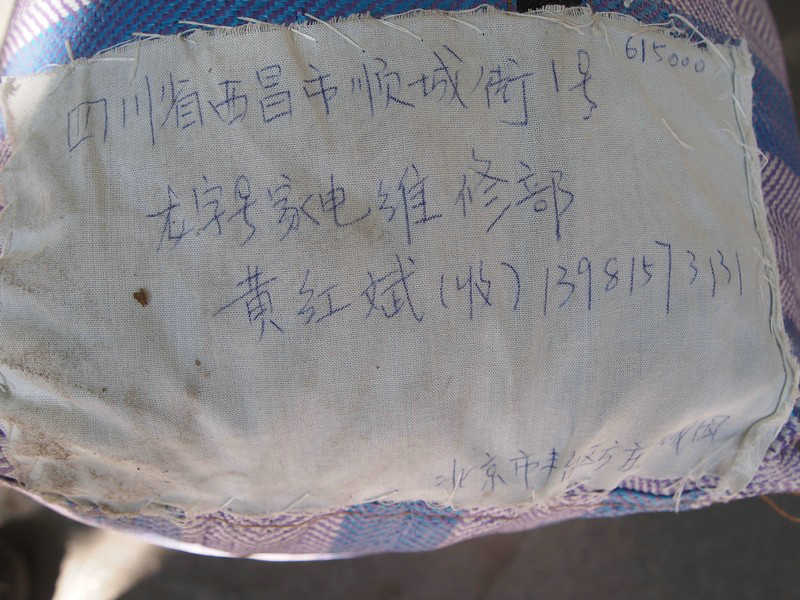 615000
四川省西昌市顺城街1号
龙字号家电维修部
黄红斌(收)13981573131
北京市丰区方庄